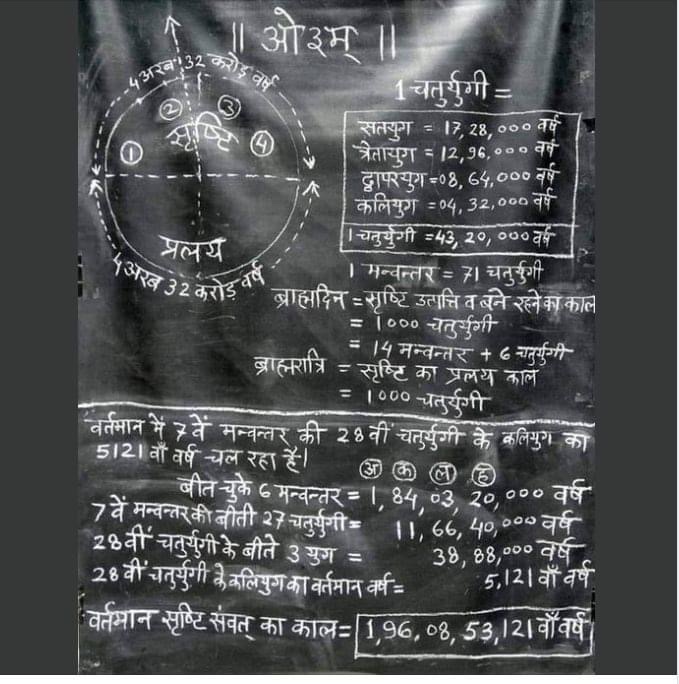 ॥ ओ३म् ॥
4 अरब 32 करोड़ वर्ष
① ② ③ ④
सृष्टि
प्रलय
4 अरब 32 करोड़ वर्ष
1 चतुर्युगी =
सतयुग = 17,28,000 वर्ष
त्रेतायुग = 12,96,000 वर्ष
द्वापरयुग = 08,64,000 वर्ष
कलियुग = 04,32,000 वर्ष
1 चतुर्युगी = 43,20,000 वर्ष
1 मन्वन्तर = 71 चतुर्युगी
ब्राह्मदिन = सृष्टि उत्पत्ति व बने रहने का काल
= 1000 चतुर्युगी
= 14 मन्वन्तर + 6 चतुर्युगी
ब्राह्मरात्रि = सृष्टि का प्रलय काल
= 1000 चतुर्युगी
वर्तमान में 7 वें मन्वन्तर की 28 वीं चतुर्युगी के कलियुग का
5121 वाँ वर्ष चल रहा है।
अ क ल ह
बीत चुके 6 मन्वन्तर = 1,84,03,20,000 वर्ष
7 वें मन्वन्तर की बीती 27 चतुर्युगी = 11,66,40,000 वर्ष
28 वीं चतुर्युगी के बीते 3 युग = 38,88,000 वर्ष
28 वीं चतुर्युगी के कलियुग का वर्तमान वर्ष = 5,121 वाँ वर्ष
वर्तमान सृष्टि संवत् का काल = 1,96,08,53,121 वाँ वर्ष